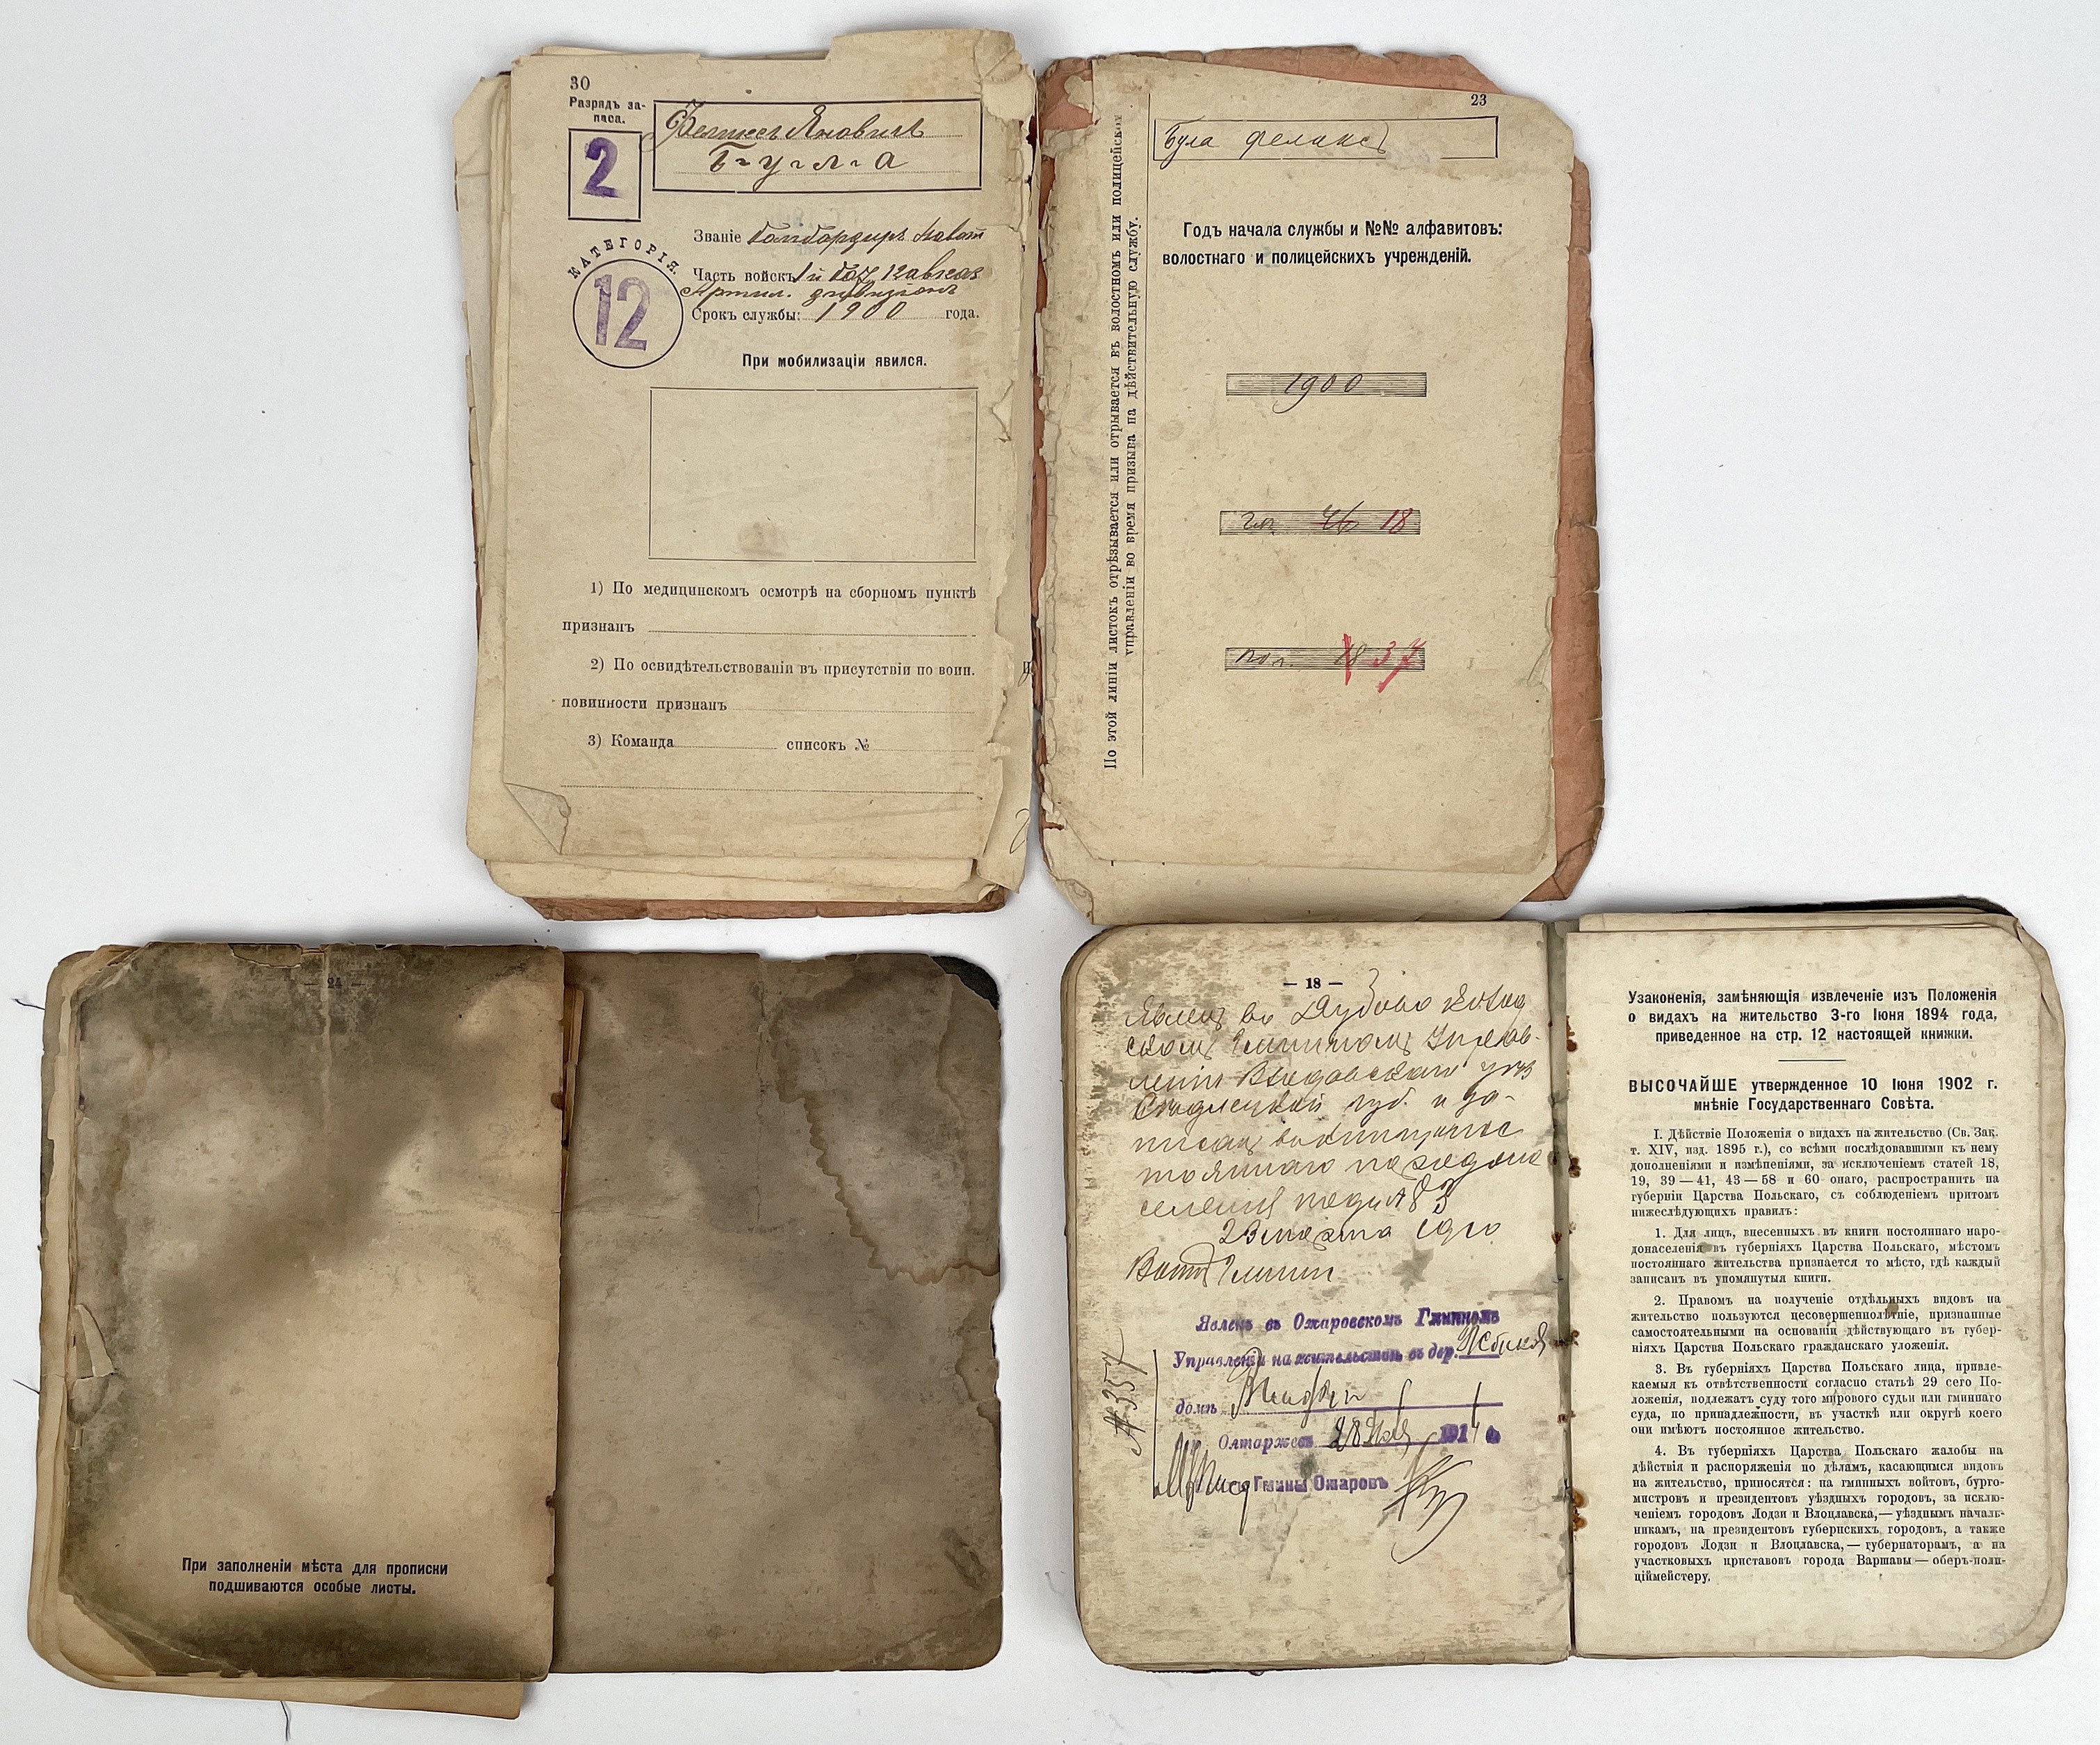 30
Разрядъ за-
паса.
2
Феликсъ Яновичъ
Б-у-л-а
КАТЕГОРІЯ.
12
Званіе Бомбардиръ Навод
Часть войскъ 1й
Артил. дивизіонъ
Срокъ службы: 1900 года.
При мобилизаціи явился.
1) По медицинскомъ осмотрѣ на сборномъ пунктѣ
признанъ
2) По освидѣтельствованіи въ присутствіи по воин.
повинности признанъ
3) Команда списокъ №
23
Була Феликсъ
По этой линіи листокъ отрѣзывается или отрывается въ волостномъ или полицейскомъ
управленіи во время призыва на дѣйствительную службу.
Годъ начала службы и №№ алфавитовъ:
волостнаго и полицейскихъ учрежденій.
1900
18
пол. 18 37
— 24 —
При заполненіи мѣста для прописки
подшиваются особые листы.
— 18 —
Явленъ въ
скомъ Гминномъ Управ-
леніи Влодавскаго уѣз
Сѣдлецкой губ. и за-
писанъ въ книгу пос
тояннаго народона
селенія подъ № 83
23 марта 1910
Войтъ Гмины
Явленъ въ Ожаровскомъ Гминномъ
Управленіи на жительство въ дер.
домъ
Олтаржевъ 28 1914 г.
Гмины Ожаровъ
№ 357
Узаконенія, замѣняющія извлеченіе изъ Положенія
о видахъ на жительство 3-го Іюня 1894 года,
приведенное на стр. 12 настоящей книжки.
ВЫСОЧАЙШЕ утвержденное 10 Іюня 1902 г.
мнѣніе Государственнаго Совѣта.
I. Дѣйствіе Положенія о видахъ на жительство (Св. Зак.
т. XIV, изд. 1895 г.), со всѣми послѣдовавшими къ нему
дополненіями и измѣненіями, за исключеніемъ статей 18,
19, 39 — 41, 43 — 58 и 60 онаго, распространить на
губерніи Царства Польскаго, съ соблюденіемъ притомъ
нижеслѣдующихъ правилъ:
1. Для лицъ, внесенныхъ въ книги постояннаго наро-
донаселенія въ губерніяхъ Царства Польскаго, мѣстомъ
постояннаго жительства признается то мѣсто, гдѣ каждый
записанъ въ упомянутыя книги.
2. Правомъ на полученіе отдѣльныхъ видовъ на
жительство пользуются несовершеннолѣтніе, признанные
самостоятельными на основаніи дѣйствующаго въ губер-
ніяхъ Царства Польскаго гражданскаго уложенія.
3. Въ губерніяхъ Царства Польскаго лица, привле-
каемыя къ отвѣтственности согласно статьѣ 29 сего По-
ложенія, подлежатъ суду того мирового судьи или гминнаго
суда, по принадлежности, въ участкѣ или округѣ коего
они имѣютъ постоянное жительство.
4. Въ губерніяхъ Царства Польскаго жалобы на
дѣйствія и распоряженія по дѣламъ, касающимся видовъ
на жительство, приносятся: на гминныхъ войтовъ, бурго-
мистровъ и президентовъ уѣздныхъ городовъ, за исклю-
ченіемъ городовъ Лодзи и Влоцлавска,— уѣзднымъ началь-
никамъ, на президентовъ губернскихъ городовъ, а также
городовъ Лодзи и Влоцлавска, — губернаторамъ, а на
участковыхъ приставовъ города Варшавы — оберъ-поли-
ціймейстеру.